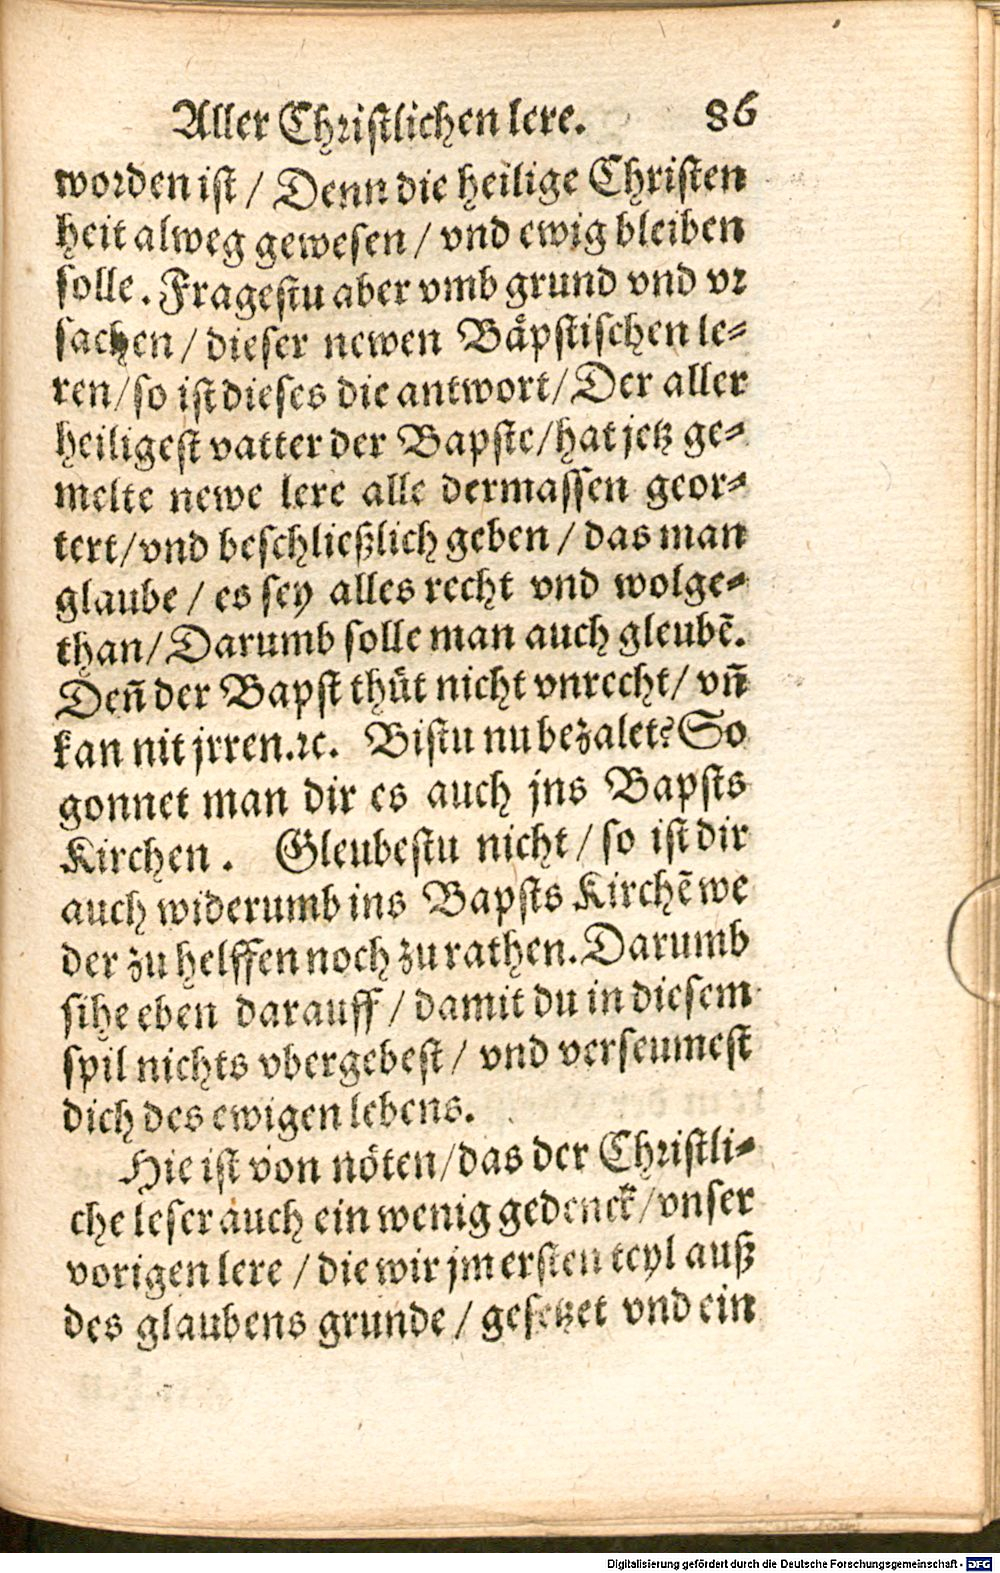 Aller Christlichen lere. 86
worden ist / Denn die heilige Christen
heit alweg gewesen / vnd ewig bleiben
solle. Fragestu aber vmb grund vnd vr
sachen / dieser newen Bäpstischen le⸗
ren/so ist dieses die antwort/Der aller
heiligest vatter der Bapste/hat jetz ge⸗
melte newe lere alle dermassen geor⸗
tert/vnd beschließlich geben / das man
glaube / es sey alles recht vnd wolge⸗
than/Darumb solle man auch gleubẽ.
Deñ der Bapst thüt nicht vnrecht/ vñ
kan nit jrren.ꝛc. Bistu nu bezalet? So
gonnet man dir es auch jns Bapsts
Kirchen. Gleubestu nicht / so ist dir
auch widerumb ins Bapsts Kirchẽ we
der zu helffen noch zu rathen. Darumb
sihe eben darauff / damit du in diesem
spil nichts vbergebest / vnd verseumest
dich des ewigen lebens.
Hie ist von nöten/das der Christli⸗
che leser auch ein wenig gedenck/vnser
vorigen lere / die wir jm ersten teyl auß
des glaubens grunde / gesetzet vnd ein
Digitalisierung gefördert durch die Deutsche Forschungsgemeinschaft - DFG